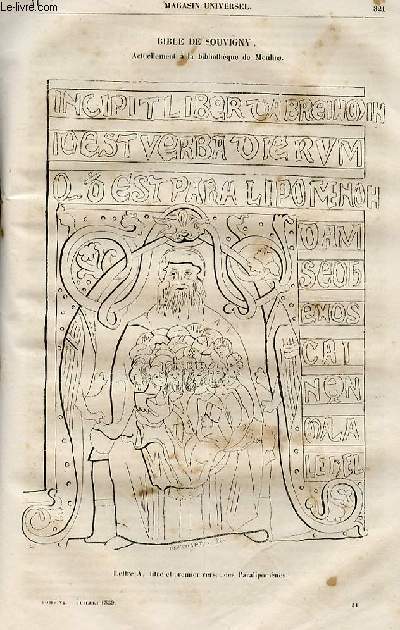 MAGASIN UNIVERSEL.
321
BIBLE DE SOUVIGNY.
Actuellement à la bibliothèque de Moulins.
INCIPIT LIBER
IDEST VERBA DIERVM
EST PARALIPOMENON
A
DAM
SETH
ENOS
CAI
NAN
Lettre A, titre et premier vers des Paralipomènes.
1839.
41